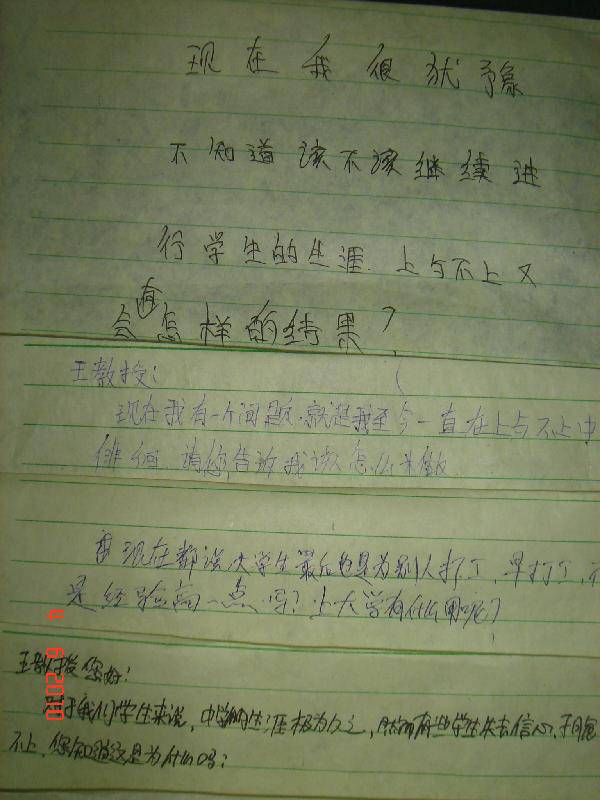 现在我很犹豫
不知道该不该继续进
行学生的生涯.上与不上又
会有怎样的结果?
王教授:
现在我有一个问题.就是我至今一直在上与不上中
徘徊.请您告诉我该怎么来做
现在都说大学生最后也是为别人打工,早打工,不
是经验高一点吗?上大学有什么用呢?
王教授您好:
对于我们学生来说,中学的生涯极为,然而有些学生失去信心,
不上,您知道这是为什么吗?